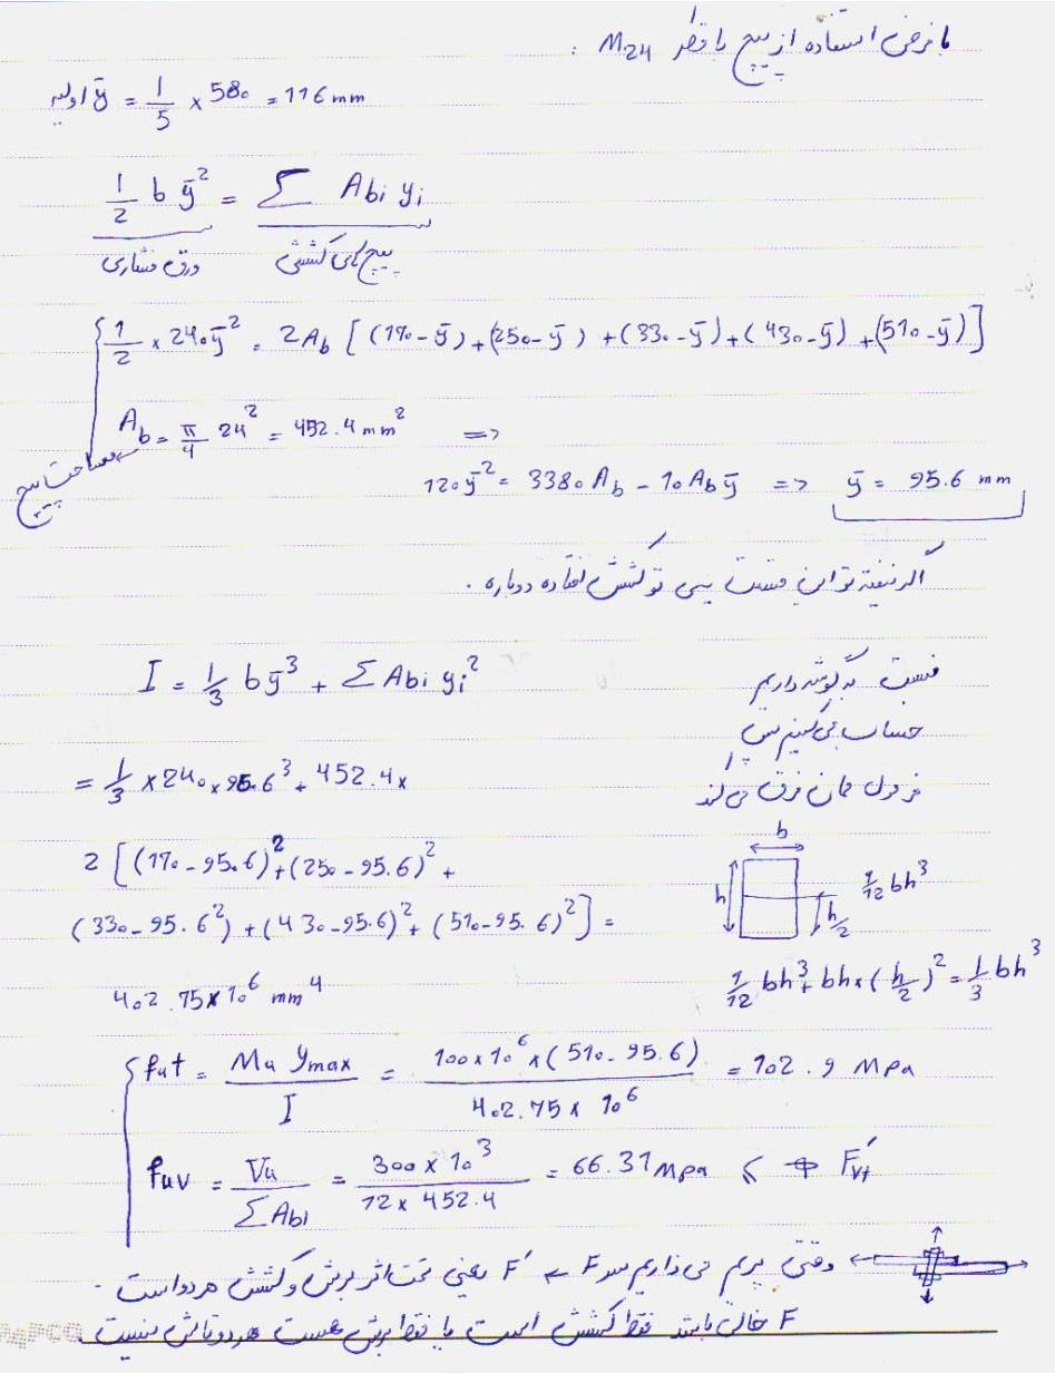 با فرض استفاده از پیچ با قطر M24 :
ȳ اولیه = 1/5 × 580 = 116 mm
1/2 b ȳ² = Σ Abi yi
ورق فشاری پیچ های کششی
1/2 × 240 ȳ² = 2Ab [(170-ȳ)+(250-ȳ)+(330-ȳ)+(430-ȳ)+(510-ȳ)]
Ab = π/4 24² = 452.4 mm² =>
مساحت پیچ
120ȳ² = 3380Ab - 10Abȳ => ȳ = 95.6 mm
اگر نیفته تو این قسمت یعنی تو کشش افتاده دوباره .
I = 1/3 bȳ³ + Σ Abi yi²
نسبت به گوشه داریم
حساب می کنیم پس
فرمول مان فرق می کند
= 1/3 × 240 × 95.6³ + 452.4 ×
2 [(170-95.6)²+(250-95.6)²+
(330-95.6²)+(430-95.6)²+(510-95.6)²] =
402.75×10⁶ mm⁴
b
h
h/2
1/12 bh³
1/12 bh³+bh×(h/2)² = 1/3 bh³
fut = Mu ymax / I = 100×10⁶×(510-95.6) / 402.75×10⁶ = 102.9 MPa
fuv = Vu / ΣAbi = 300×10³ / 12×452.4 = 66.31 MPa ≤ Φ F'vt
وقتی پریم می ذاریم سر F ← F' یعنی تحت اثر برش و کشش هر دو است .
F خالی باشد فقط کشش است یا فقط برش هست هر دوتاش نیست
PAPCO